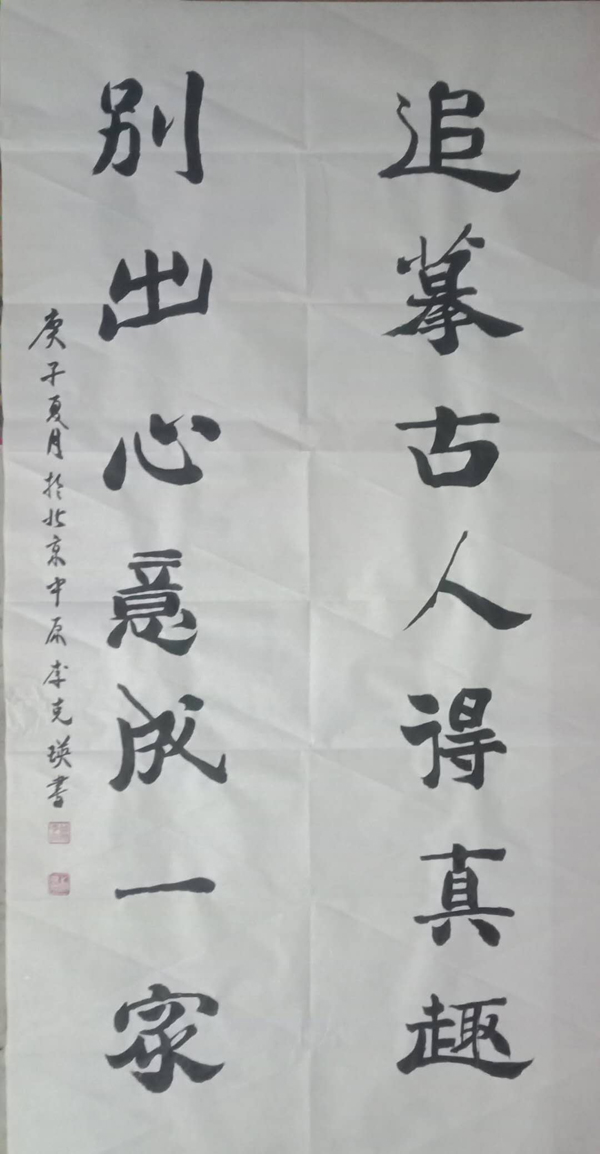 追摹古人得真趣
别出心意成一家
庚子夏月於北京中原李克瑛書